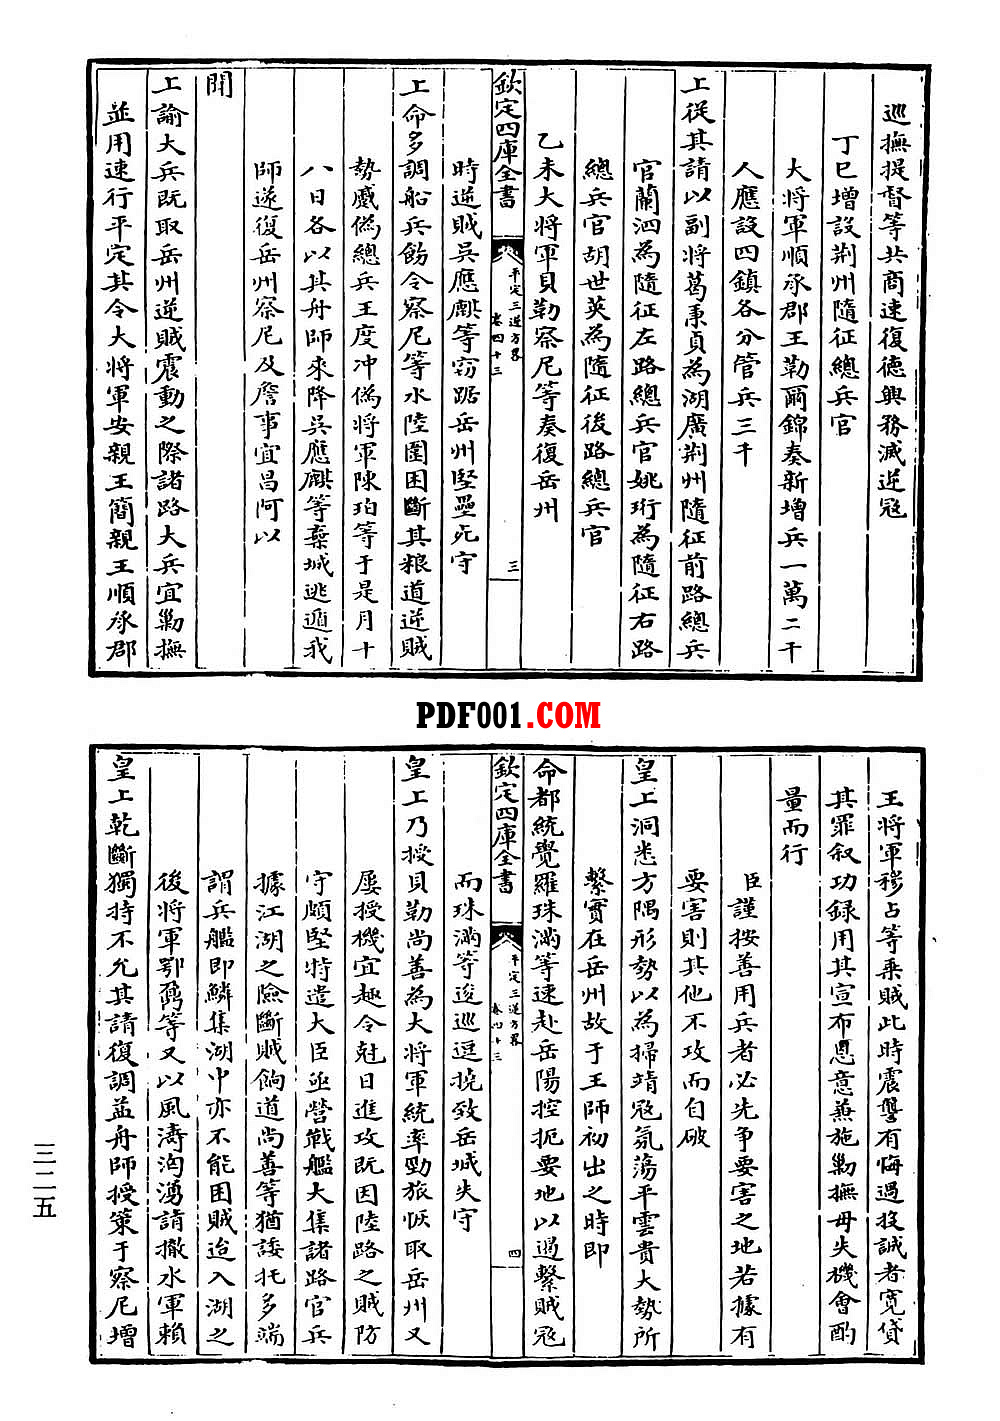 巡撫提督等共商速復德興務滅逆寇
丁巳增設荆州隨征總兵官
大將軍順承郡王勒爾錦奏新增兵一萬二千
人應設四鎮各分管兵三千
上從其請以副將葛秉貞為湖廣荆州隨征前路總兵
官蘭泗為隨征左路總兵官姚珩為隨征右路
總兵官胡世英為隨征後路總兵官
乙未大將軍貝勒察尼等奏復岳州
欽定四庫全書 平定三逆方畧 卷四十三 三
時逆賊吳應麒等窃踞岳州堅壘死守
上命多調船兵飭令察尼等水陸圍困斷其粮道逆賊
勢蹙偽總兵王度冲偽將軍陳珀等于是月十
八日各以其舟師來降吳應麒等棄城逃遁我
師遂復岳州察尼及詹事宜昌阿以
聞
上諭大兵既取岳州逆賊震動之際諸路大兵宜勦撫
並用速行平定其令大將軍安親王簡親王順承郡
PDF001.COM
王將軍穆占等乘賊此時震讋有悔過投誠者寛貸
其罪叙功録用其宣布恩意兼施勦撫毋失機會酌
量而行
臣謹按善用兵者必先争要害之地若據有
要害則其他不攻而自破
皇上洞悉方隅形勢以為掃靖寇氛蕩平雲貴大勢所
繫實在岳州故于王師初出之時即
命都統覺羅珠滿等速赴岳陽控扼要地以遏繫賊寇
欽定四庫全書 平定三逆方畧 卷四十三 四
而珠滿等逡巡逗撓致岳城失守
皇上乃授貝勒尚善為大將軍統率勁旅恢取岳州又
屢授機宜趣令尅日進攻既因陸路之賊防
守頗堅特遣大臣亟營戰艦大集諸路官兵
據江湖之險斷賊餉道尚善等猶諉托多端
謂兵艦即鱗集湖中亦不能困賊迨入湖之
後將軍鄂鼐等又以風濤洶湧請撤水軍賴
皇上乾斷獨持不允其請復調益舟師授策于察尼增
三二五